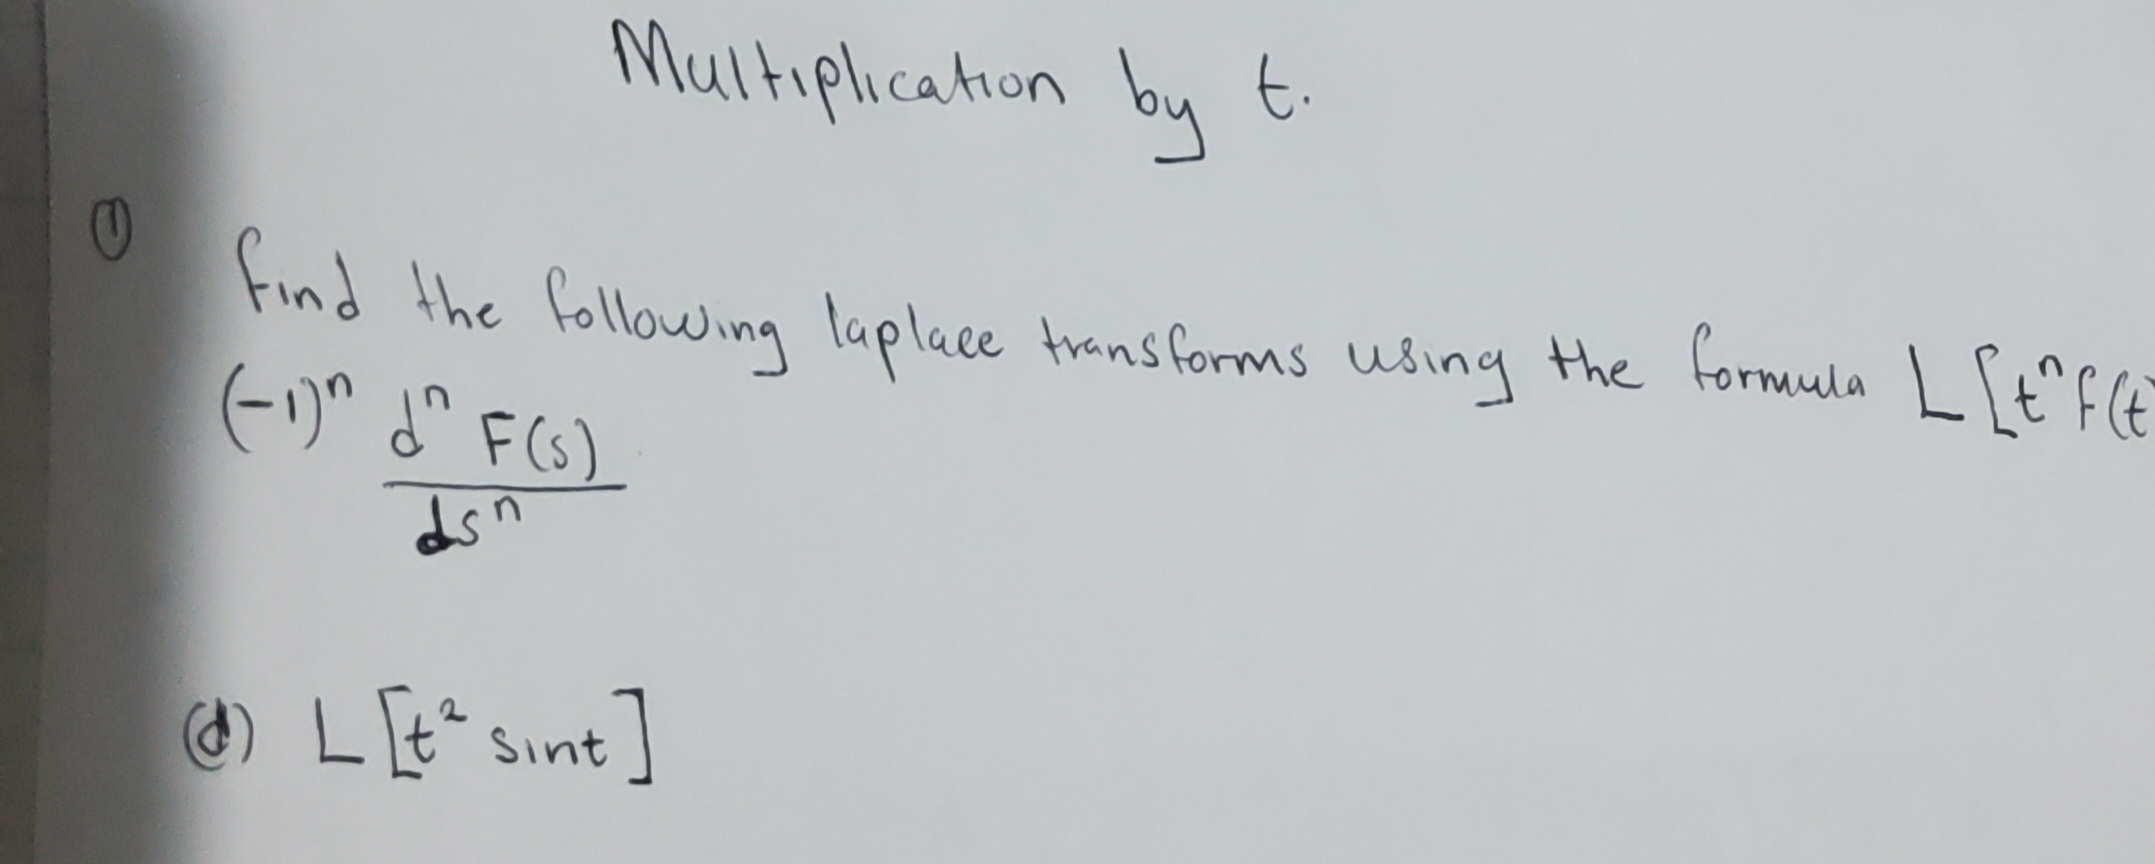 Multiplication by t.
① find the following laplace transforms using the formula L[tⁿf(t)
(-1)ⁿ dⁿ F(s)
dsⁿ
(d) L[t² sint]